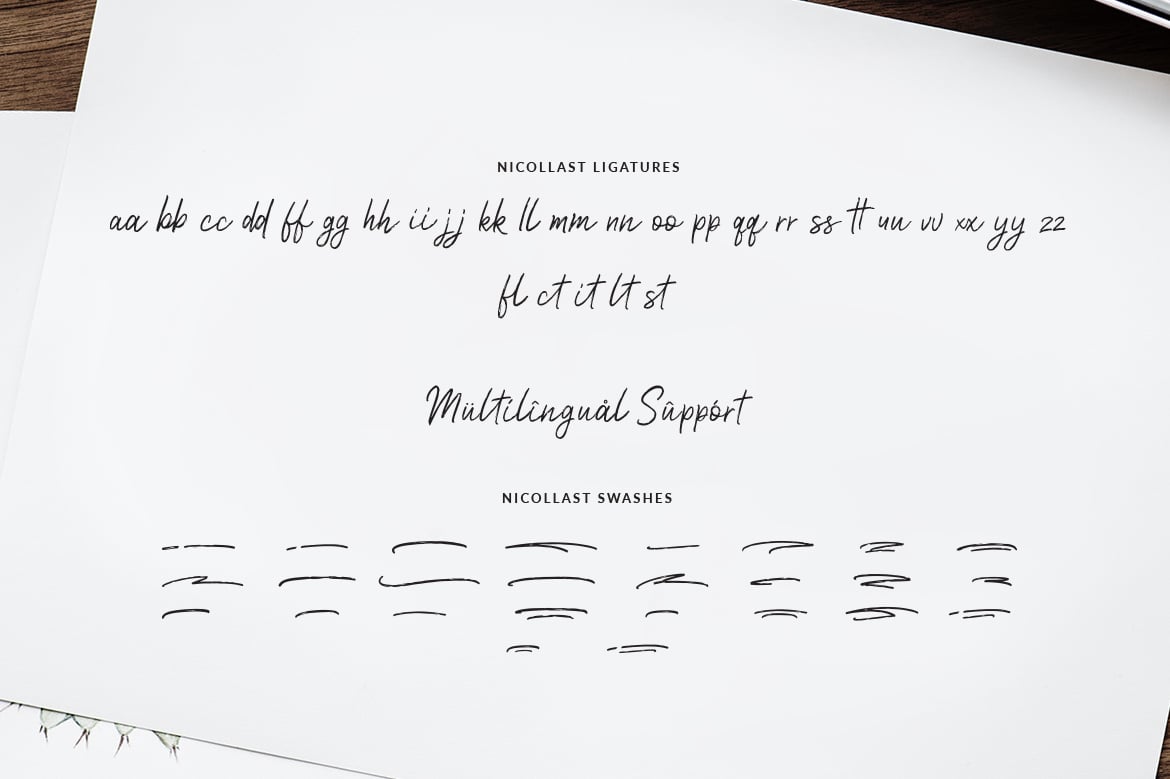 NICOLLAST LIGATURES
aa bb cc dd ff gg hh ii jj kk ll mm nn oo pp qq rr ss tt uu vv xx yy zz
fl ct it lt st
Mültílînguål Sûppórt
NICOLLAST SWASHES